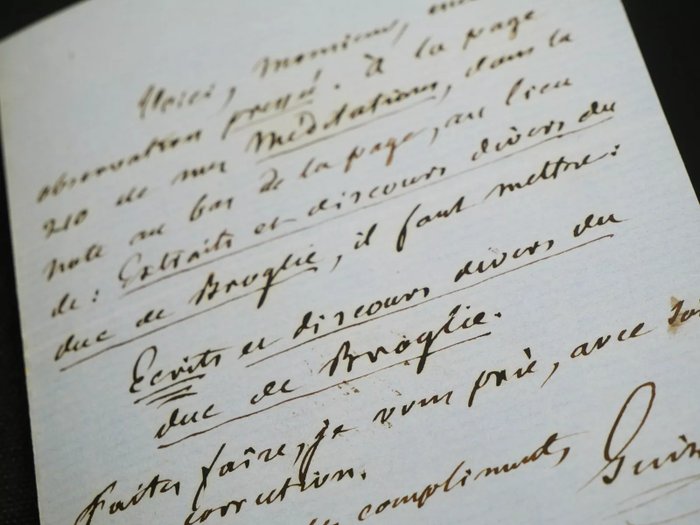 Voici, Monsieur, une
observation pressé. à la page
210 de mes Méditations, dans la
note au bas de la page, au lieu
de : Extraits et discours divers du
duc de Broglie, il faut mettre :
Ecrits et discours divers du
duc de Broglie.
Faites faire, je vous prie, avec
correction.
compliments
Guiz